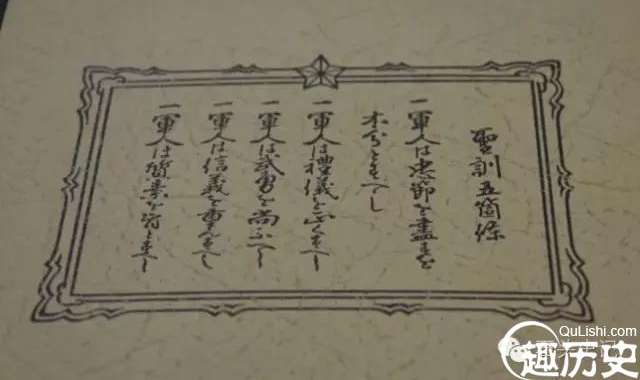 聖訓五箇條
一軍人は忠節を盡すを
本分とすへし
一軍人は禮儀を正くすへし
一軍人は武勇を尚ふへし
一軍人は信義を重んすへし
一軍人は質素を旨とすへし
QuLishi.com
趣历史